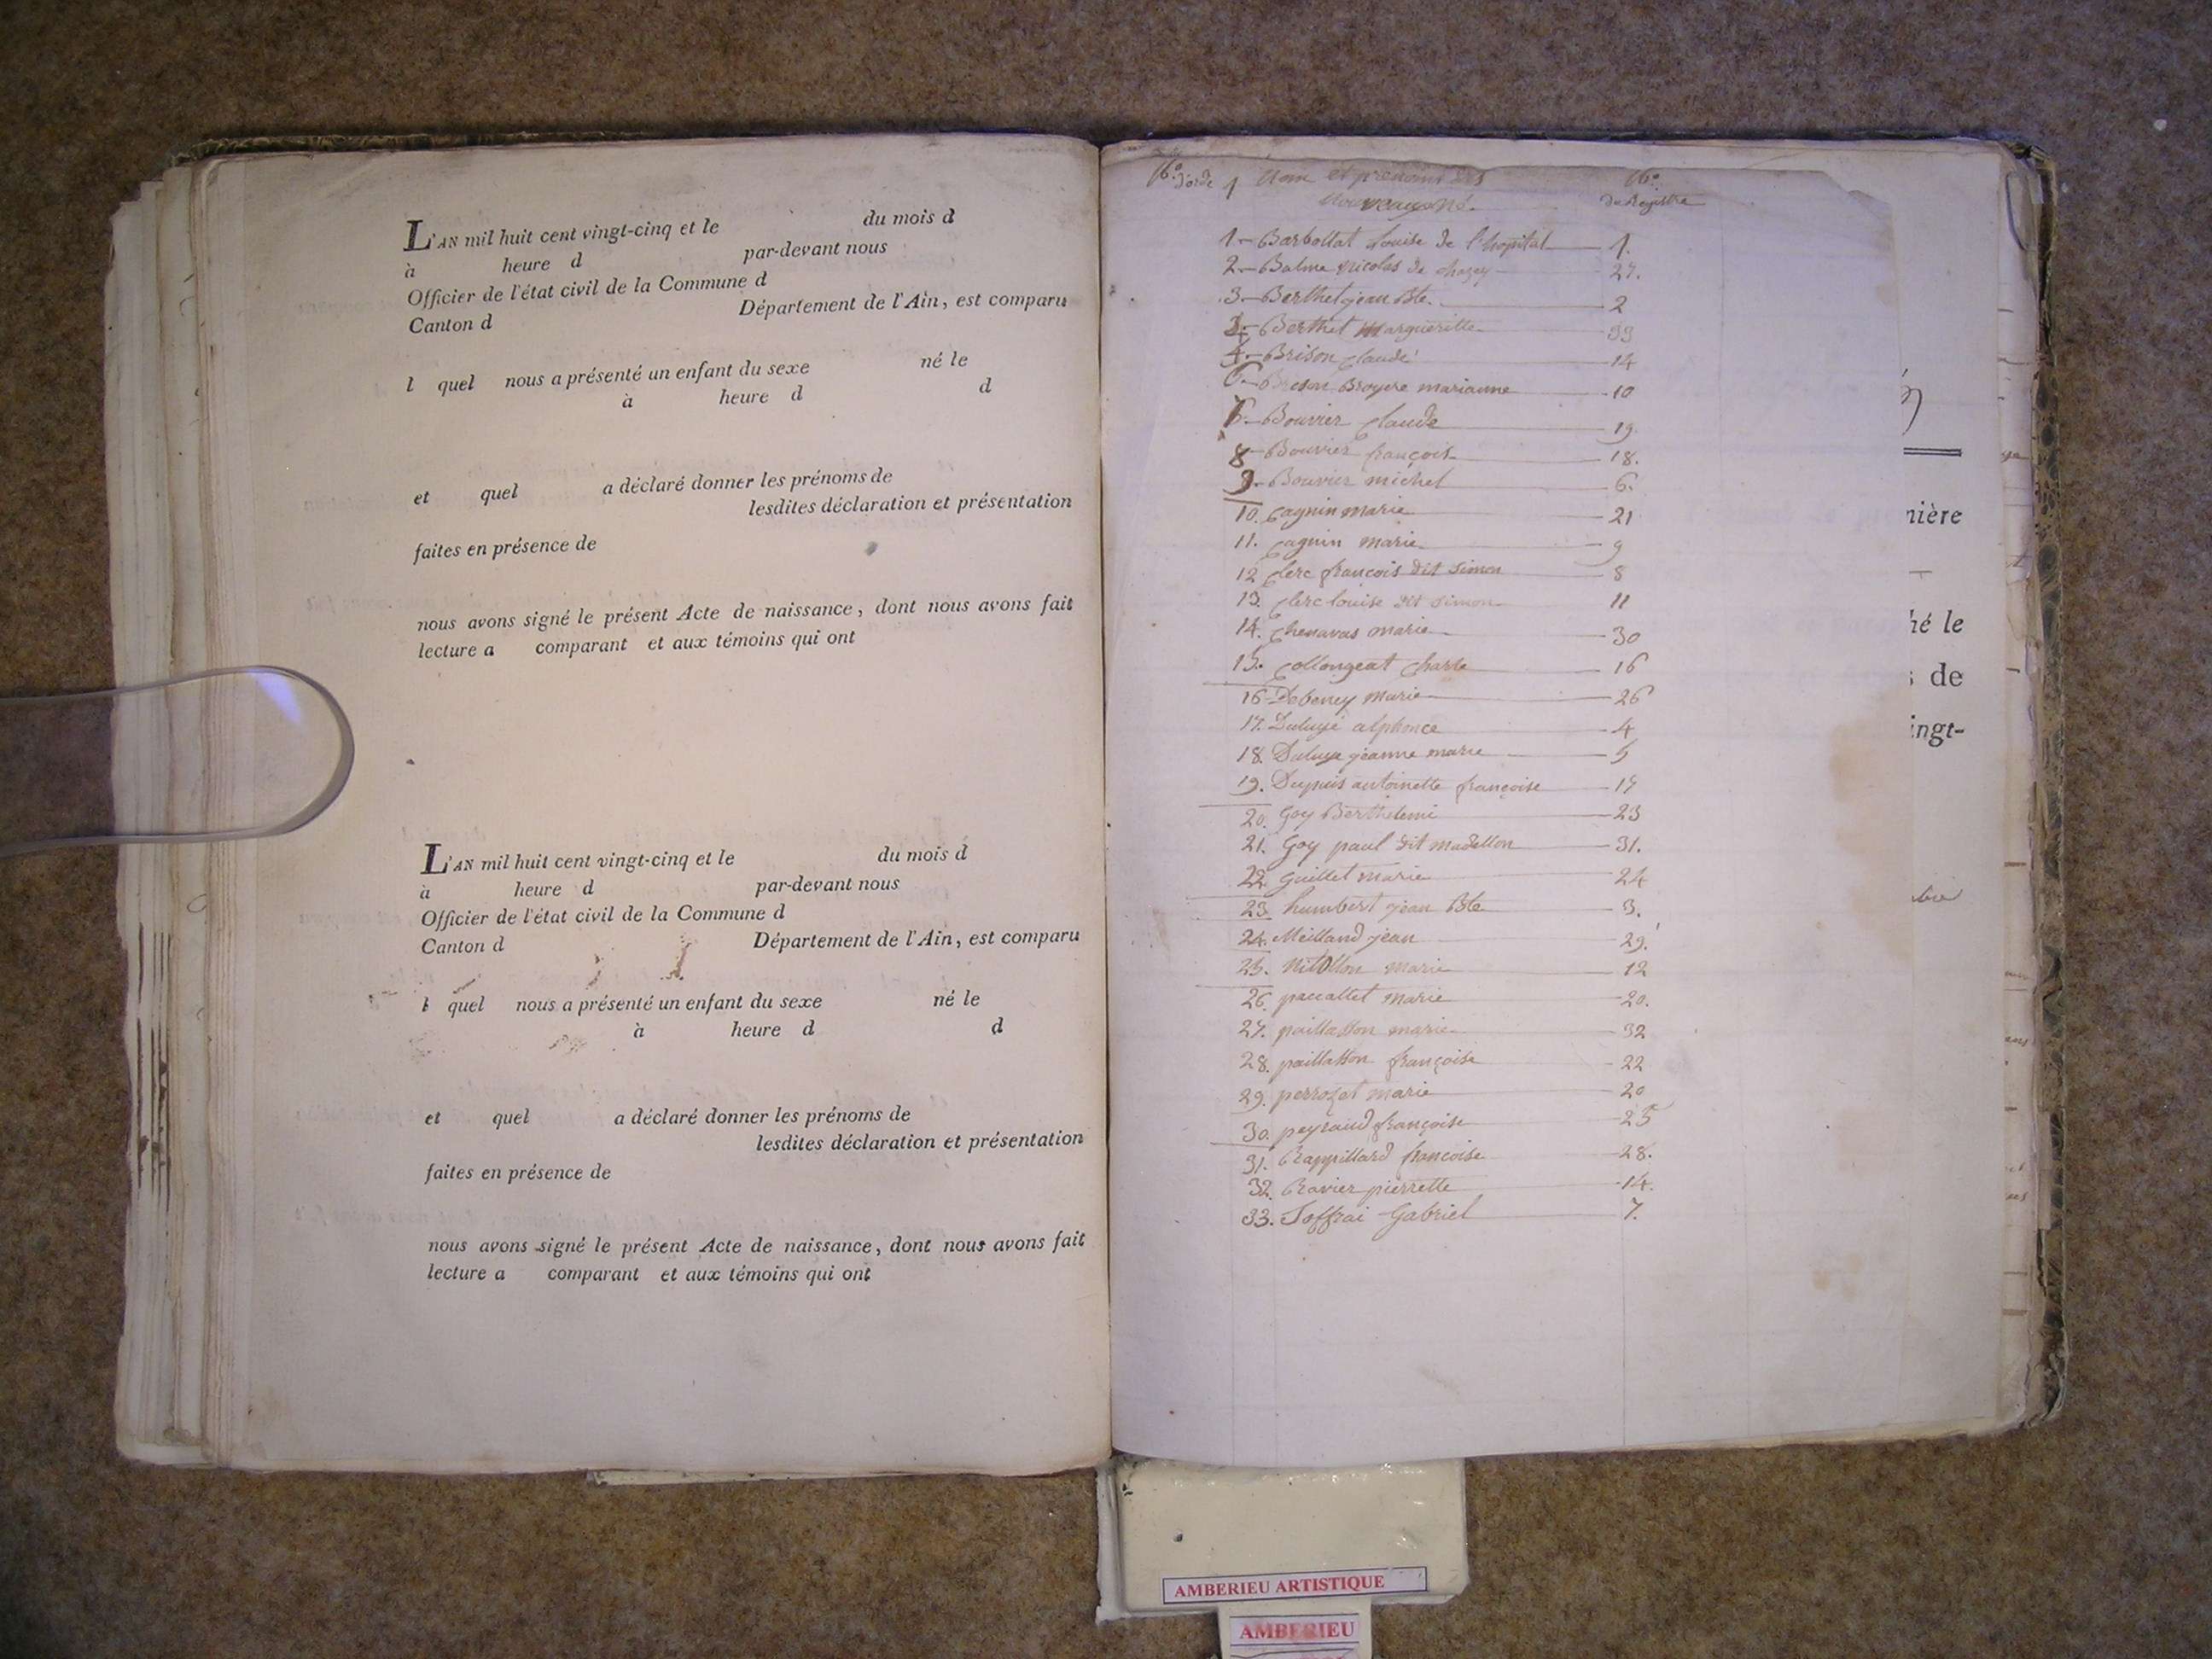 L'AN mil huit cent vingt-cinq et le du mois d
à heure d par-devant nous
Officier de l'état civil de la Commune d
Canton d Département de l'Ain, est comparu
l quel nous a présenté un enfant du sexe né le
à heure d d
et quel a déclaré donner les prénoms de
lesdites déclaration et présentation
faites en présence de
nous avons signé le présent Acte de naissance, dont nous avons fait
lecture a comparant et aux témoins qui ont
L'AN mil huit cent vingt-cinq et le du mois d
à heure d par-devant nous
Officier de l'état civil de la Commune d
Canton d Département de l'Ain, est comparu
l quel nous a présenté un enfant du sexe né le
à heure d d
et quel a déclaré donner les prénoms de
lesdites déclaration et présentation
faites en présence de
nous avons signé le présent Acte de naissance, dont nous avons fait
lecture a comparant et aux témoins qui ont
No. d'orde Nom et prénoms des No.
Nouveaux Né. du Registre
1. Barbollat Louise de l'hopital 1.
2. Balme nicolas de chazey 27.
3. Berthet jean Bte. 2
4. Berthet Margueritte 33
Brison Claude 14
6. Brison Broyere marianne 10
Bouvier Claude 19
8 Bouvier françois 18.
9. Bouvier michel 6.
10. Cagnin marie 21
11. Cagnin marie 9
12 Clerc francois dit simon 8
13. Clerc louise dit simon 11
14. Chenavas marie 30
15. Collongeat Charle 16
16 Debeney marie 26
17. alphonce 4
18. jeanne marie 5
19. Dupuis antoinette françoise 17
20. Goy Berthelemi 23
21. Goy paul dit madellon 31.
22. Guillet marie 24
23 humbert jean Bte 3.
24. Meilland jean 29.
25. marie 12
26. paccallet marie 20.
27. paillasson marie 32
28. paillasson françoise 22
29. perrozet marie 20
30. peyraud françoise 25
31. Rappillard francoise 28.
32. Ravier pierrette 14.
33. Joffrai Gabriel 7.
nière
hé le
s de
ingt-
AMBERIEU ARTISTIQUE
AMBERIEU